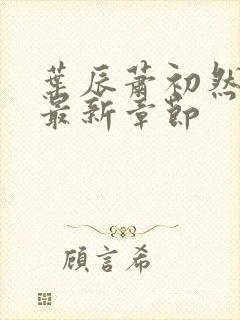 葉辰蕭初然
最新章節
顧言希